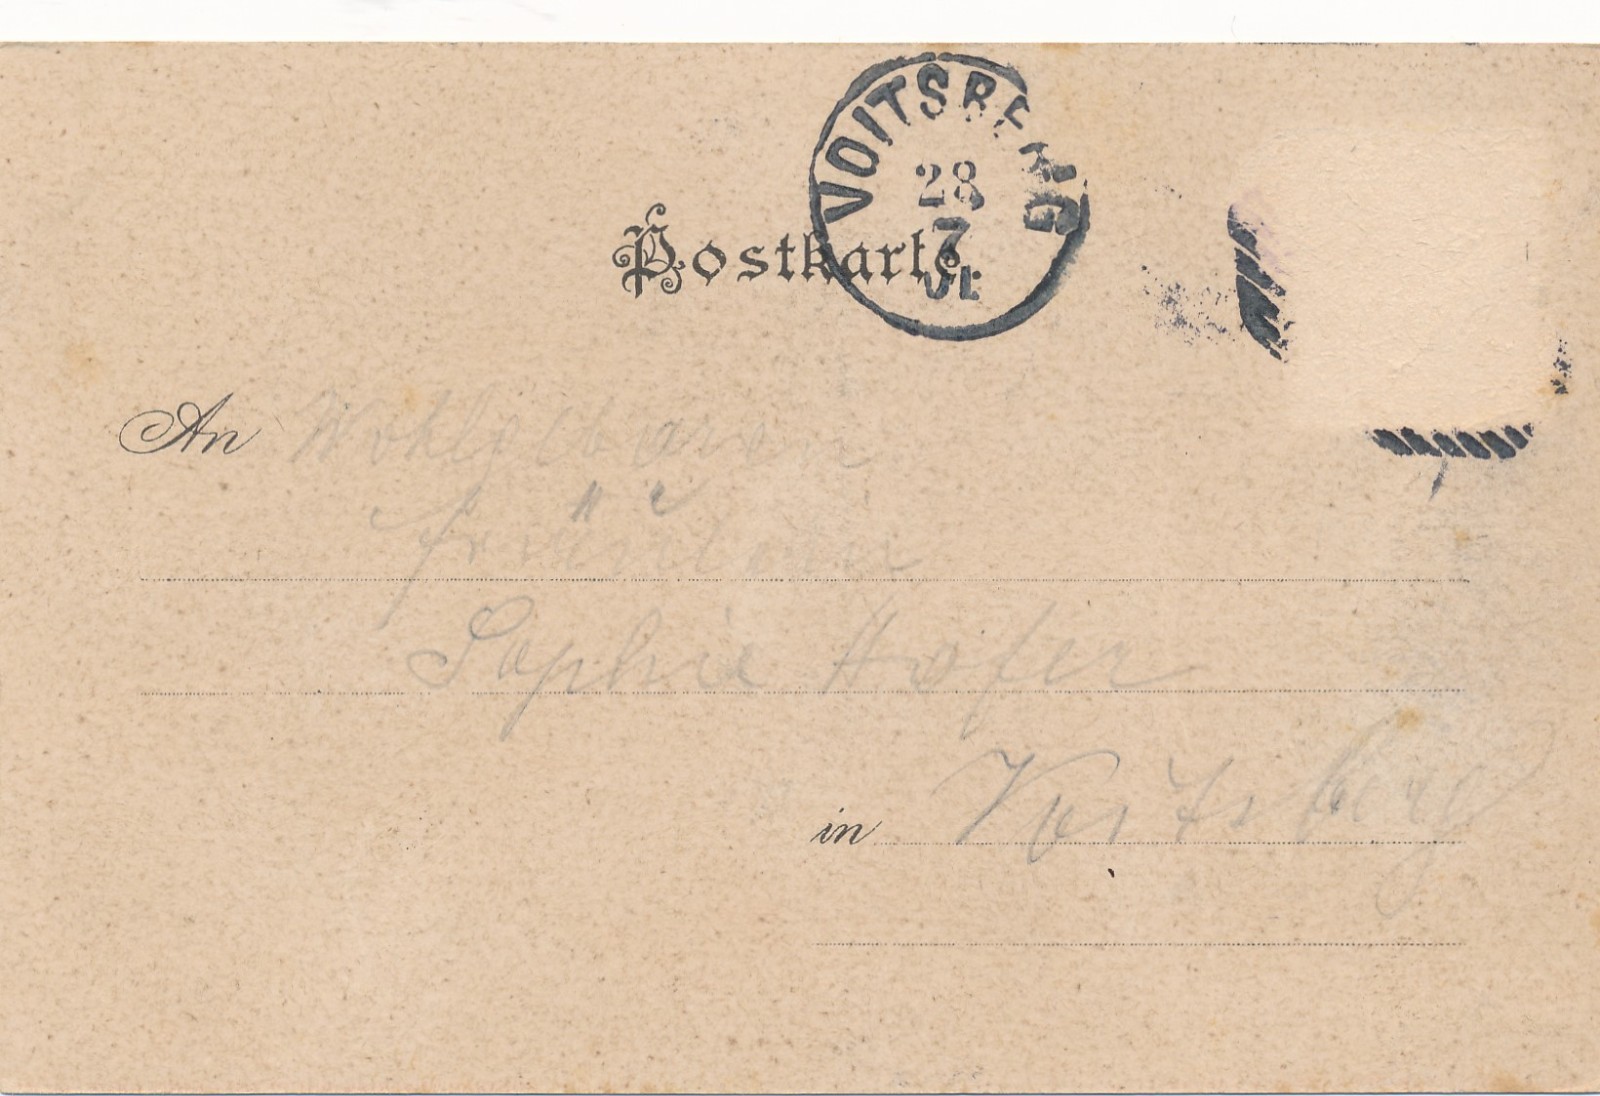 VOITSBERG
28
7
Postkarte
An Wohlgeboren
Fräulein
Sophie Hofer
in Voitsberg